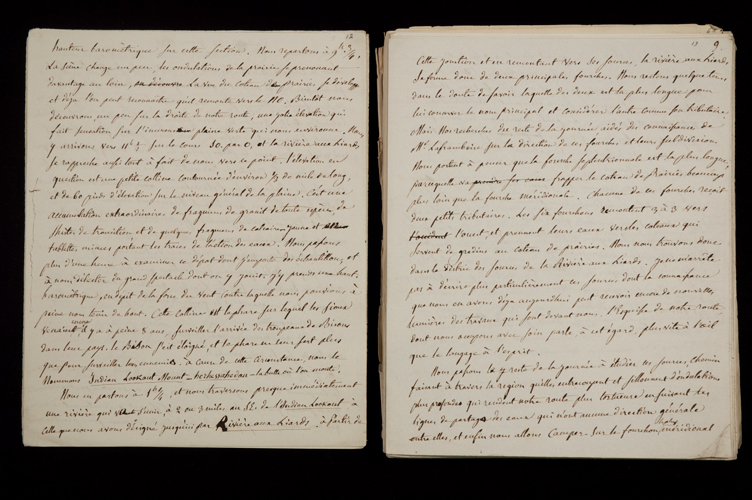 12
hauteur barométrique sur cette section. Nous repartons à 9h 3/4.
La scène change un peu, les ondulations de la prairie se prononcent
davantage au loin, La vue du Coteau de prairie se développe
et déjà l'on peut reconnaître qu'il remonte vers le NO. Bientôt nous
découvrons, un peu sur la droite de notre route, une jolie élévation qui
fait sensation sur l'immense plaine verte qui nous environne. Nous
y arrivons vers 11h sur le cours SO. par O, et la rivière aux Liards
se rapproche aussitôt à fait de nous vers ce point. L'élévation en
question est une petite colline contournée d'environ 1/2 de mile de long,
et de 60 pieds d'élévation sur le niveau général de la plaine. C'est une
accumulation extraordinaire de fragmens de granit de toute espèce, de
shistes de transition et de quelques fragmens de calcaire jaune et
tablette, minces portent les traces de l'action des eaux. Nous passons
plus d'une heure à examiner ce dépôt dont j'emporte des échantillons, et
à nous délecter du grand spectacle dont on y jouit. J'y prends une haut.
barométrique, en dépit de la force du vent contre laquelle nous pouvions à
peine nous tenir debout. Cette colline est le phare sur lequel les Sioux
venaient il y a à peine 8 ans, surveiller l'arrivée des troupeaux de Bisons
dans leur pays. Le Bison s'est éloigné, et le phare ne sert plus
que pour surveiller les ennemis. à cause de cette circonstance, nous le
Nommons Indian Lookout Mount – la butte où l'on monte.
Nous en partons à 1h 1/2, et nous traversons presque immédiatement
une rivière qui s'unie, à 2 ou 3 miles au SE. de l'Indian Lookout à
celle que nous avons désignée jusqu'ici par Rivière aux Liards. à partir de
13
9
Cette jonction et en remontant vers ses sources, la rivière aux Liards
se forme donc de deux principales fourches. Nous restons quelque tems
dans le doute de savoir laquelle des deux est la plus longue pour
lui conserver le nom principal et considérer l'autre comme son tributaire.
Mais nos recherches du reste de la journée aidés des connaissances de
Mr. Laframboise sur la direction de ces fourches et leurs subdivisions
Nous portent à penser que la fourche septentrionale est la plus longue,
parcequ'elle va frapper le coteau des prairies beaucoup
plus loin que la fourche méridionale. Chacune de ces fourches reçoit
deux petits tributaires. Les six fourchons remontent vers
l'ouest, et prennent leurs eaux vers les coteaux qui
servent de gradins au coteau des prairies. Nous nous trouvons donc
dans le dédale des sources de la Rivière aux Liards. Je ne m'arrête
pas à décrire plus particulièrement ces sources dont la connaissance
que nous en avons déjà aujourd'hui peut recevoir encore de nouvelles
lumières des travaux qui sont devant nous. L'esquisse de notre route
dont nous croyons avoir soin parle, à cet égard, plus vite à l'œil
que le langage à l'esprit.
Nous passons le reste de la journée à étudier ces sources, chemin
faisant à travers la région qu'elles entrecoupent et sillonnent d'ondulations
plus profondes qui rendent notre route plus tortueuse en faisant des
lignes de partage des eaux qui n'ont aucune direction générale
entre elles, et enfin nous allons Camper sur le fourchon méridional